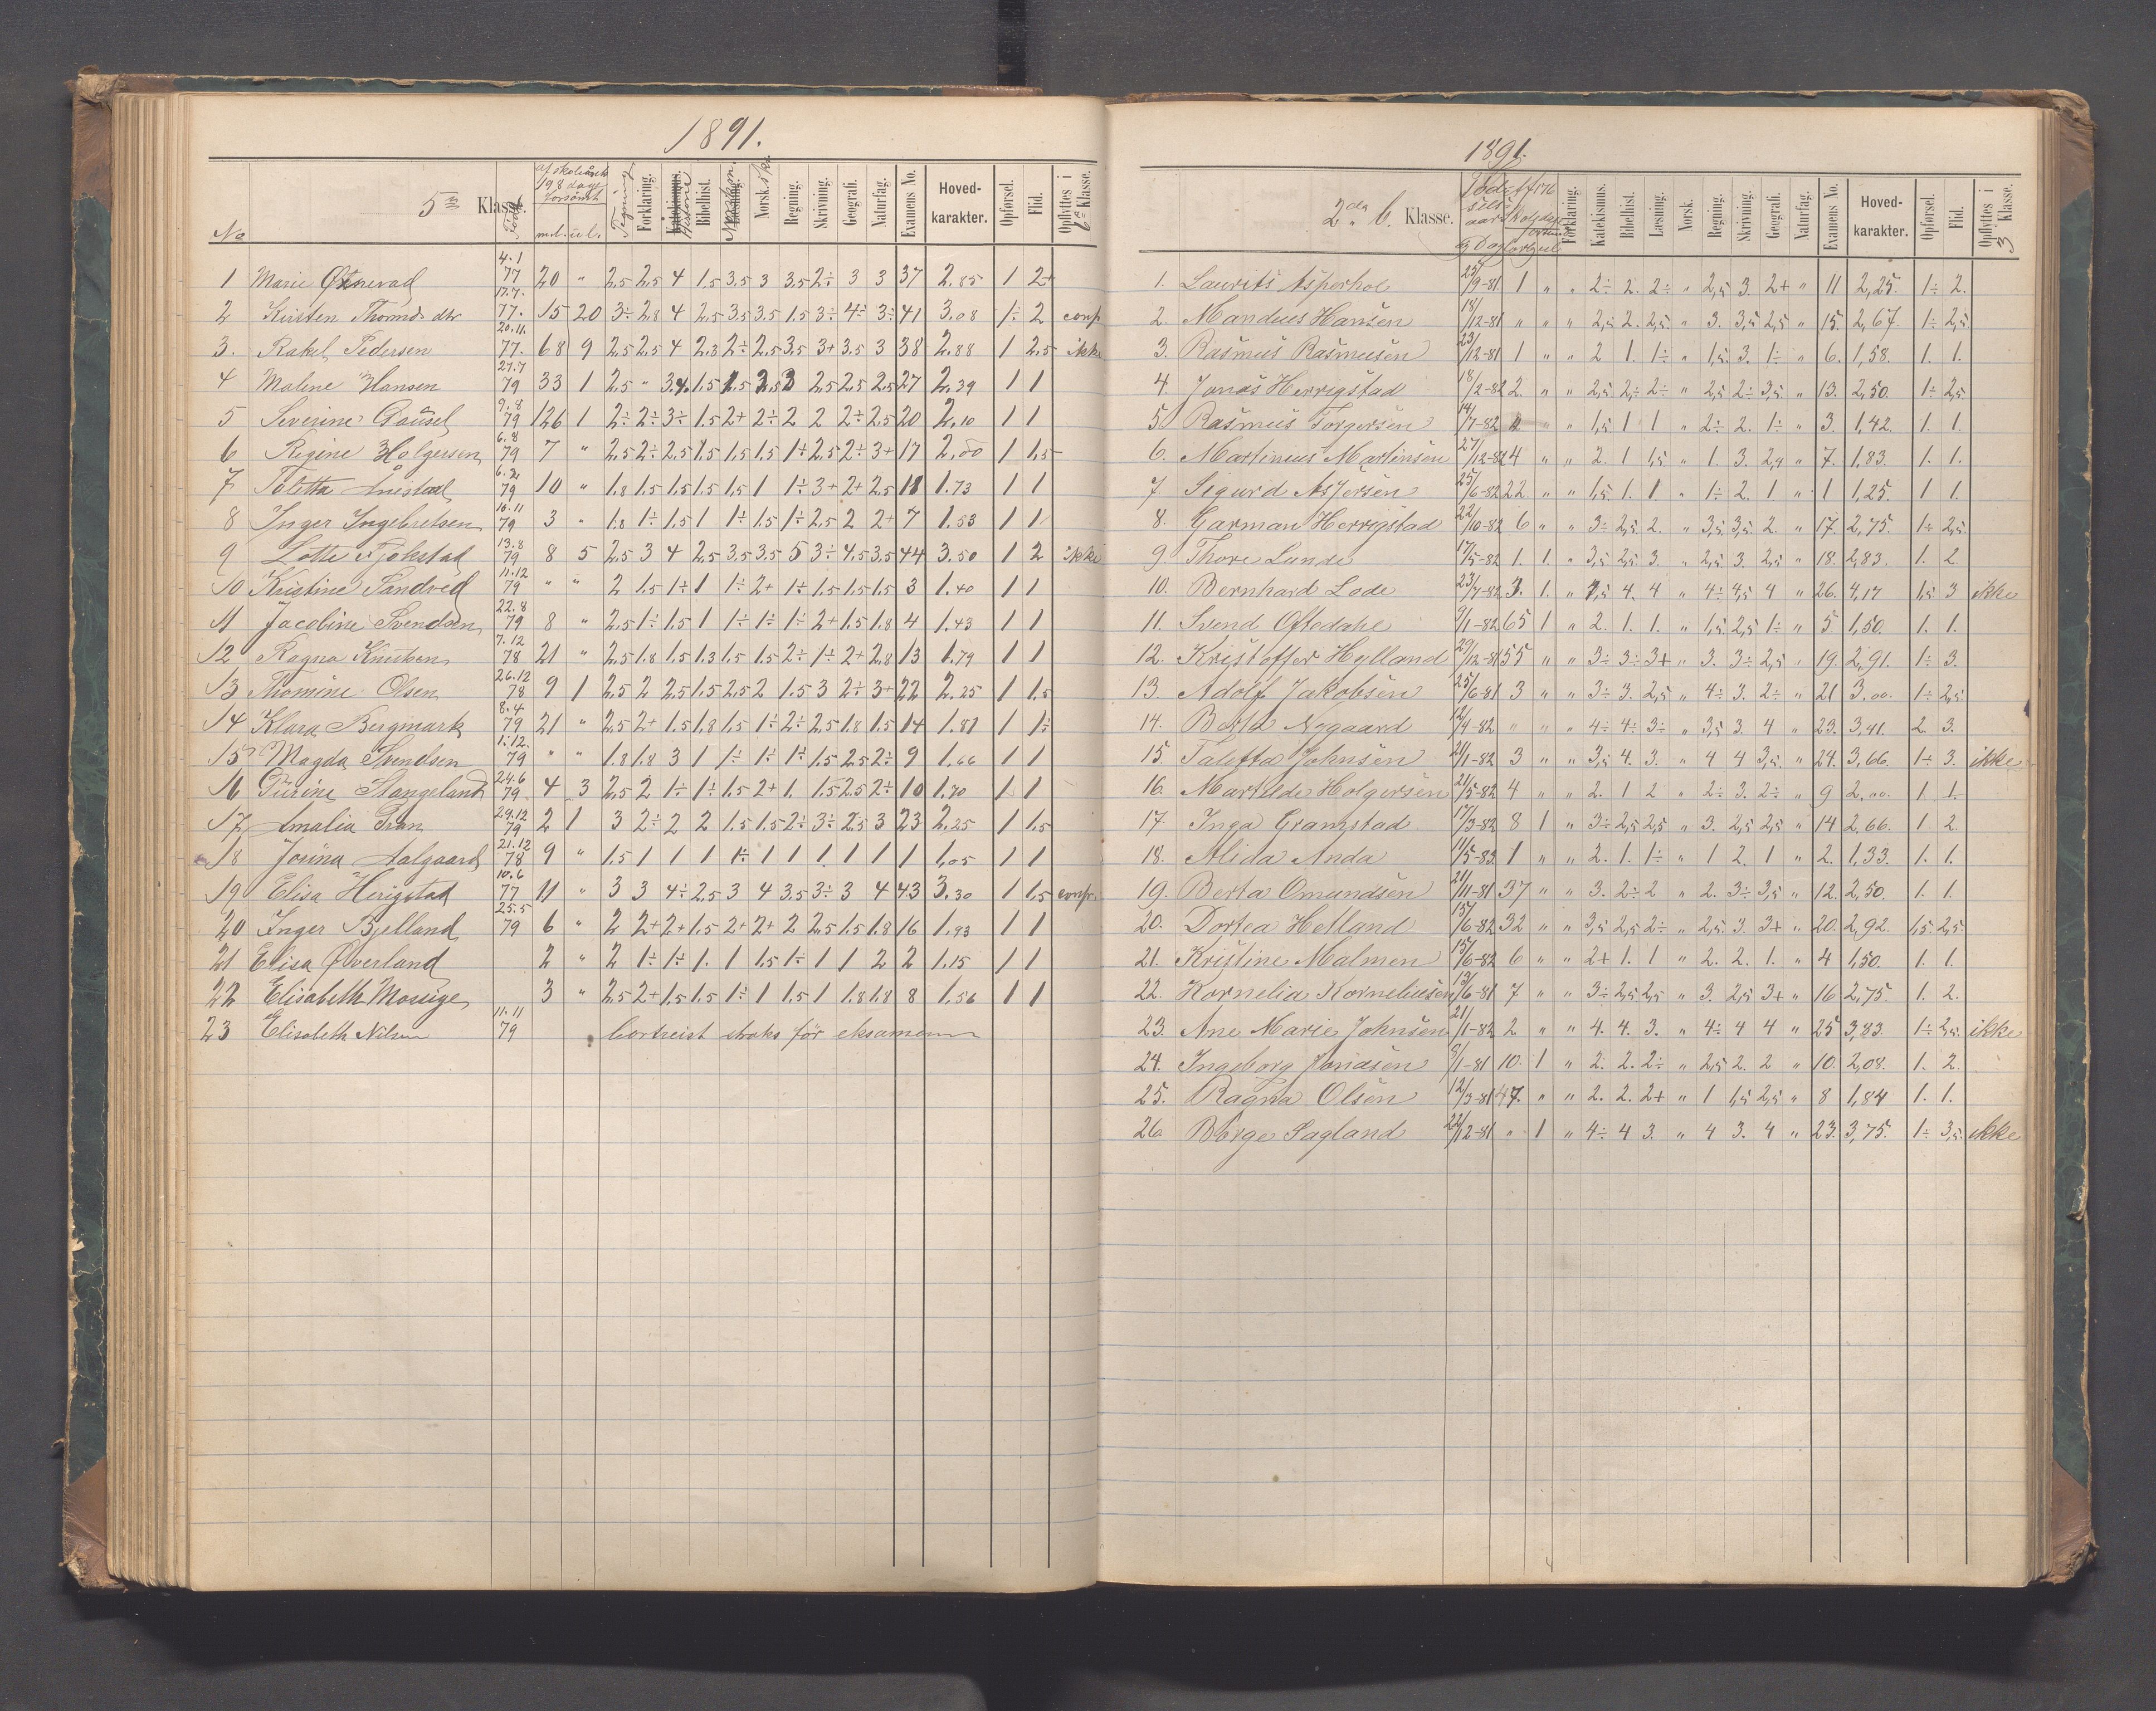 1891.
5te Klasse.
No
Født
af skoleårets 198 dage forsömt
m.l. u.l.
Tegning Forklaring. Historie Bibelhist. Norsk m. Norsk. sk. Regning. Skrivning. Geografi. Naturfag. Examens No. Hoved-karakter. Opførsel. Flid. Opflyttes i 6te Klasse.
1 Marie Østnevad 4.1 77 20 " 2,5 2,5 4 1.5 3.5 3 3.5 2÷ 3 3 37 2.85 1 2+
2 Kirsten Thomds dtr 17.7. 77. 15 20 3÷ 2,8 4 2,5 3,5 3,5 1.5 3÷ 4÷ 3÷ 41 3.08 1÷ 2 conf
3. Rakel Pedersen 20.11. 77. 68 9 2,5 2,5 4 2.3 2÷ 2.5 3,5 3+ 3.5 3 38 2.88 1 2.5 ikke
4 Maline Hansen 27.7 79 33 1 2,5 " 3.4 1.5 1.5 2,5 3 2,5 2,5 2,5 27 2,39 1 1
5 Severine Gausel 9.8 79 126 1 2÷ 2÷ 3÷ 1.5 2+ 2÷ 2 2 2÷ 2.5 20 2,10 1 1
6 Regine Holgersen 6.8 79 7 " 2,5 2÷ 2,5 1.5 1.5 1.5 1÷ 2,5 2÷ 3+ 17 2,00 1 1,5
7 Toletta Auestad 79 10 " 1.8 1.5 1.5 1.5 1,5 1 1÷ 3+ 2+ 2.5 11 1.73 1 1
8 Inger Ingebretsen 10.11 79 3 " 1.8 1÷ 1.5 1 1÷ 1.5 1÷ 2,5 2 2+ 7 1.53 1 1
9 Lotte Tjokstad 13.8 79 8 5 2,5 3 4 2,5 3.5 3,5 5 3÷ 4.5 3.5 44 3.50 1 2 ikke
10 Kristine Sandved 11.12 79 " " 2 1.5 1÷ 1 1÷ 2+ 1÷ 1.5 1.5 1.5 3 1.40 1 1
11 Jacobine Svendsen 22.8 79 8 " 2,5 1÷ 1.5 1 1÷ 1÷ 1÷ 2+ 1.5 1.8 4 1.43 1 1
12 Ragna Knutsen 7.12 78 21 " 2,5 1.8 1.5 1.3 1.5 1.5 2÷ 1÷ 2+ 2,8 13 1.79 1 1
13 Thomine Olsen 26.12 78 9 1 2,5 2 2,5 1.5 2,5 2 1.5 3 2÷ 3+ 22 2.25 1 1.5
14 Klara Bergmark 8.4 79 21 " 2,5 2+ 1.5 1.8 1.5 1÷ 2÷ 2,5 1.8 1.5 14 1.81 1 1÷
15 Magda Svendsen 1.12. 79 " " 1.8 1.8 3 1 1÷ 1÷ 1÷ 1.5 2.5 2÷ 9 1,66 1 1
16 Turine Stangeland 24.6 79 4 3 2,5 2 1÷ 1÷ 1.5 2+ 1. 1.5 2.5 2÷ 10 1.70 1 1
17 Amalia Tran 29.12 79 2 1 3 2÷ 2 2 1.5 1.5 2÷ 3÷ 2,5 3 23 2.25 1 1,5
18 Josina Aalgaard 21.12 78 9 " 1.5 1 1 1 1÷ 1 1 1 1 1 1 1.05 1 1
19 Elisa Herigstad 10.6 77 11 " 3 3 4÷ 2,5 3 4 3.5 3÷ 3 4 43 3.30 1 1,5 confr.
20 Inger Bjelland 25.5 79 6 " 2 2+ 2+ 1.5 2+ 2+ 2 2,5 1.5 1.8 16 1.93 1 1
21 Elisa Øverland 2 " 2 1÷ 1÷ 1. 1 1.5 1÷ 1 1 2 2 1.15 1 1
22 Elisabeth Mossige 3 " 2,5 2+ 1,5 1.5 1÷ 1 1.5 1 1.8 1.8 8 1.56 1 1
23 Elisabeth Nilsen 11.11 79 bortreist straks för eksamenen
1891.
2den b. Klasse.
Forklaring. Katekismus. Bibelhist. Læsning. Norsk. Regning. Skrivning. Geografi. Naturfag. Examens No. Hoved-karakter. Opførsel. Flid. Opflyttes i 3 Klasse.
1. Laurits Asperhol 25/9-81 1 " " 2÷ 2. 2÷ " 2,5 3. 2+ " 11 2,25. 1÷ 2.
2. Mandius Hansen 18/12-81 " " " 2,5 2. 2,5. " 3. 3,5 2,5 " 15. 2,67. 1÷ 2,5.
3. Rasmus Rasmusen 23/12-81 1 " " 2 1. 1÷ " 1,5. 3. 1÷ " 6. 1,58. 1. 1.
4. Jonas Herrigstad 18/2-82 2. " " 2,5 2÷ 2÷ " 2,5 2÷ 3,5. " 13. 2,50. 1÷ 2,5.
5. Rasmus Torgersen 14/7-82 " " 1,5 1 1 " 2÷ 2. 1÷ " 3. 1,42. 1. 1.
6. Martinius Martinsen 27/12-82 4 " " 2. 1 1,5 " 1. 3. 2,5 " 7. 1,83. 1. 1.
7. Sigurd Asjersen 25/6-82 22 " " 1,5 1. 1 " 1÷ 2. 1 " 1 1,25. 1 1.
8. Garman Herrigstad 22/10-82 6 " " 3÷ 2,5 2. " 3,5 3,5. 2 " 17. 2,75. 1÷ 2,5.
9. Thore Lunde 17/5-82 1. 1. " 3,5 2,5 3. " 2,5 3. 2,5 " 18. 2,83. 1. 2.
10. Bernhard Lode 23/7-82 3. 1. " 4,5 4. 4 " 4÷ 4,5 4 " 26. 4,17 1,5 3 ikke
11. Svend Oftedahl 9/1-82 65 1 " 2. 1. 1. " 1,5 2,5 1÷ " 5 1,50. 1. 1.
12. Kristoffer Hylland 29/12-81 55 " " 3÷ 3÷ 3+ " 3. 3÷ 2,5 " 19. 2,91. 1÷ 3.
13. Adolf Jakobsen 25/6-81 3 " " 3÷ 3. 2,5 " 4÷ 3. 2÷ " 21 3,00. 1÷ 2,5.
14. Berta Nygaard 12/4-82 " " " 4÷ 4÷ 3÷ " 3,5 3. 4 " 23. 3,41. 2. 3.
15. Taletta Johnsen 21/1-82 3 " " 3,5 4. 3. " 4 4 3,5. " 24. 3,66. 1÷ 3. ikke
16. Martilde Holgersen 21/5-82 4 " " 2. 1 2 " 2÷ 3. 2÷ " 9 2,00. 1 1.
17. Inga Gramstad 17/3-82 8 1 " 3÷ 2,5 2,5 " 3. 2,5 2,5 " 14 2,66. 1 2.
18. Alida Anda 11/5-83 1 " " 2. 1. 1÷ " 1 2. 1 " 2. 1,33. 1. 1.
19. Berta Omundsen 21/11-81 37 " " 3. 2÷ 2 " 2. 3÷ 3,5 " 12. 2,50. 1. 1.
20. Dortea Hetland 15/6-82 32 " " 3,5 2,5 2÷ " 2,5. 3. 3+ " 20. 2,92. 1,5 2,5.
21. Kristine Malmen 15/6-82 6 " " 2+ 1. 1 " 2. 2. 1. " 4 1,50. 1. 1.
22. Kornelia Korneliusen 13/6-81 7 " " 3÷ 2,5 2,5 " 3. 2,5 3+ " 16 2,75. 1. 2.
23. Ane Marie Johnsen 21/1-82 2 " " 4. 4. 3. " 4÷ 4 4 " 25 3,83. 1÷ 2,5. ikke
24. Ingeborg Jonasen 9/1-81 10. 1 " 2. 2. 2÷ " 2,5 2. 2 " 10. 2,08. 1. 2.
25. Ragna Olsen 12/3-81 47. " " 2. 2. 2+ " 1 1,5 2,5 " 8 1,84 1. 1.
26 Borge Sagland 22/12-81 " 1 " 4÷ 4 3. " 4 3. 4 " 23. 3,75. 1÷ 3,5. ikke